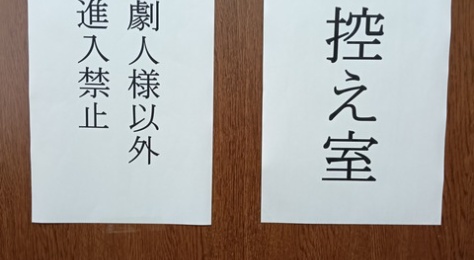 控え室
劇人様以外
進入禁止